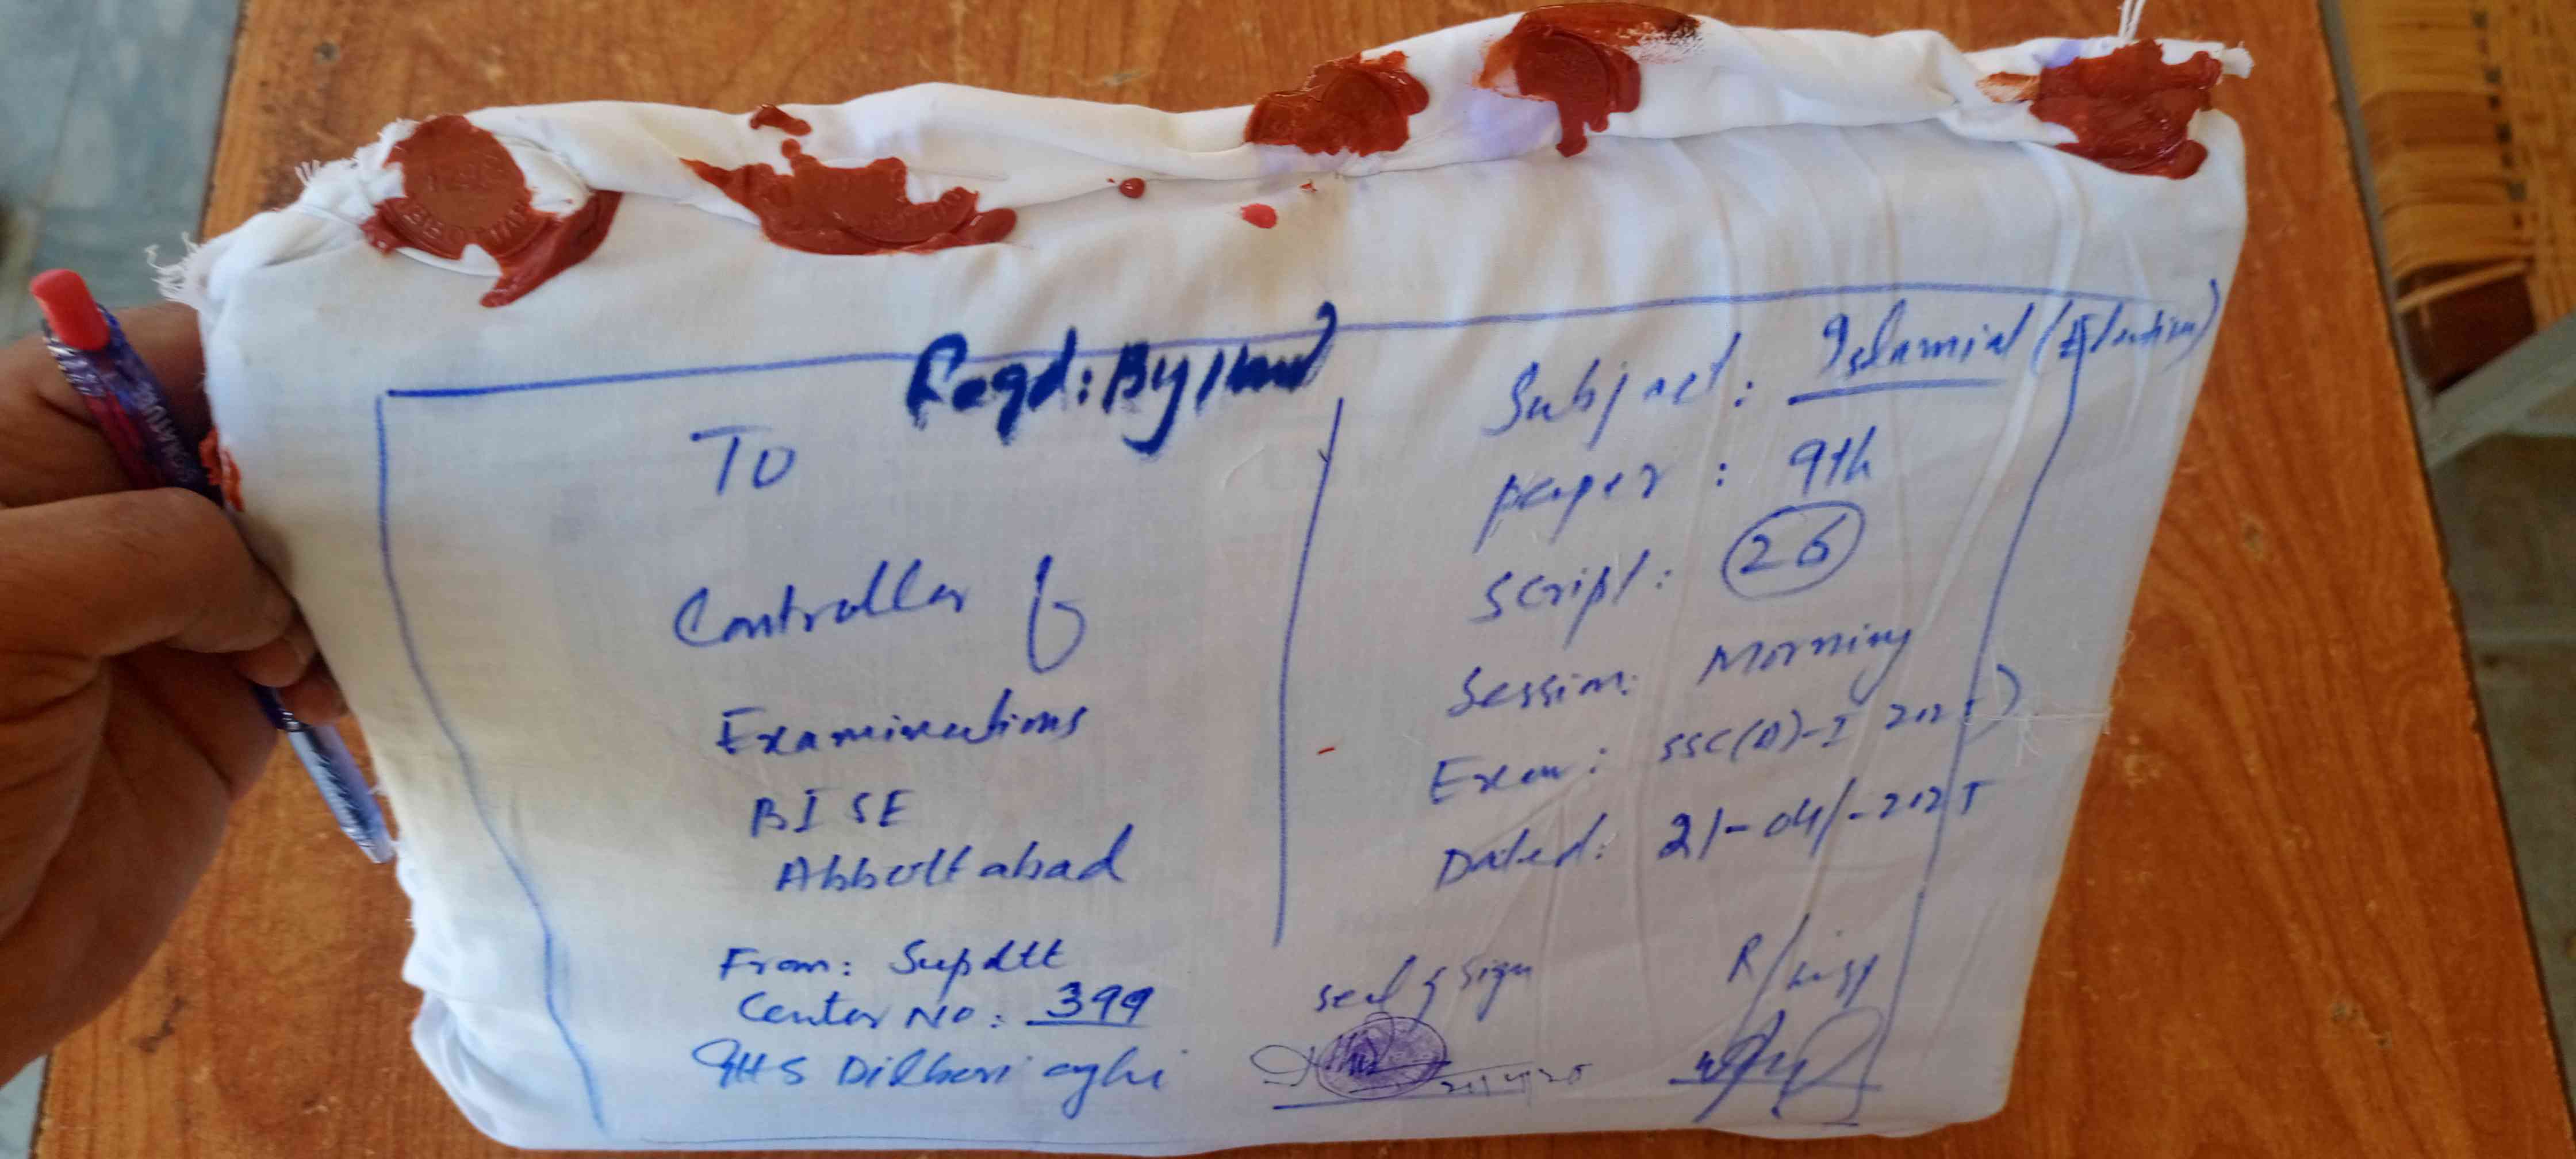 Regd: By Hand
To
Controller of
Examinations
BISE
Abbottabad
From: Supdtt
Center No: 399
GHS
Subject: Islamiat (Elective)
paper: 9th
Script: 26
Session: Morning
Exam: SSC(A)-I 2025)
Dated: 21-04-2025
seal & sign
R/insp